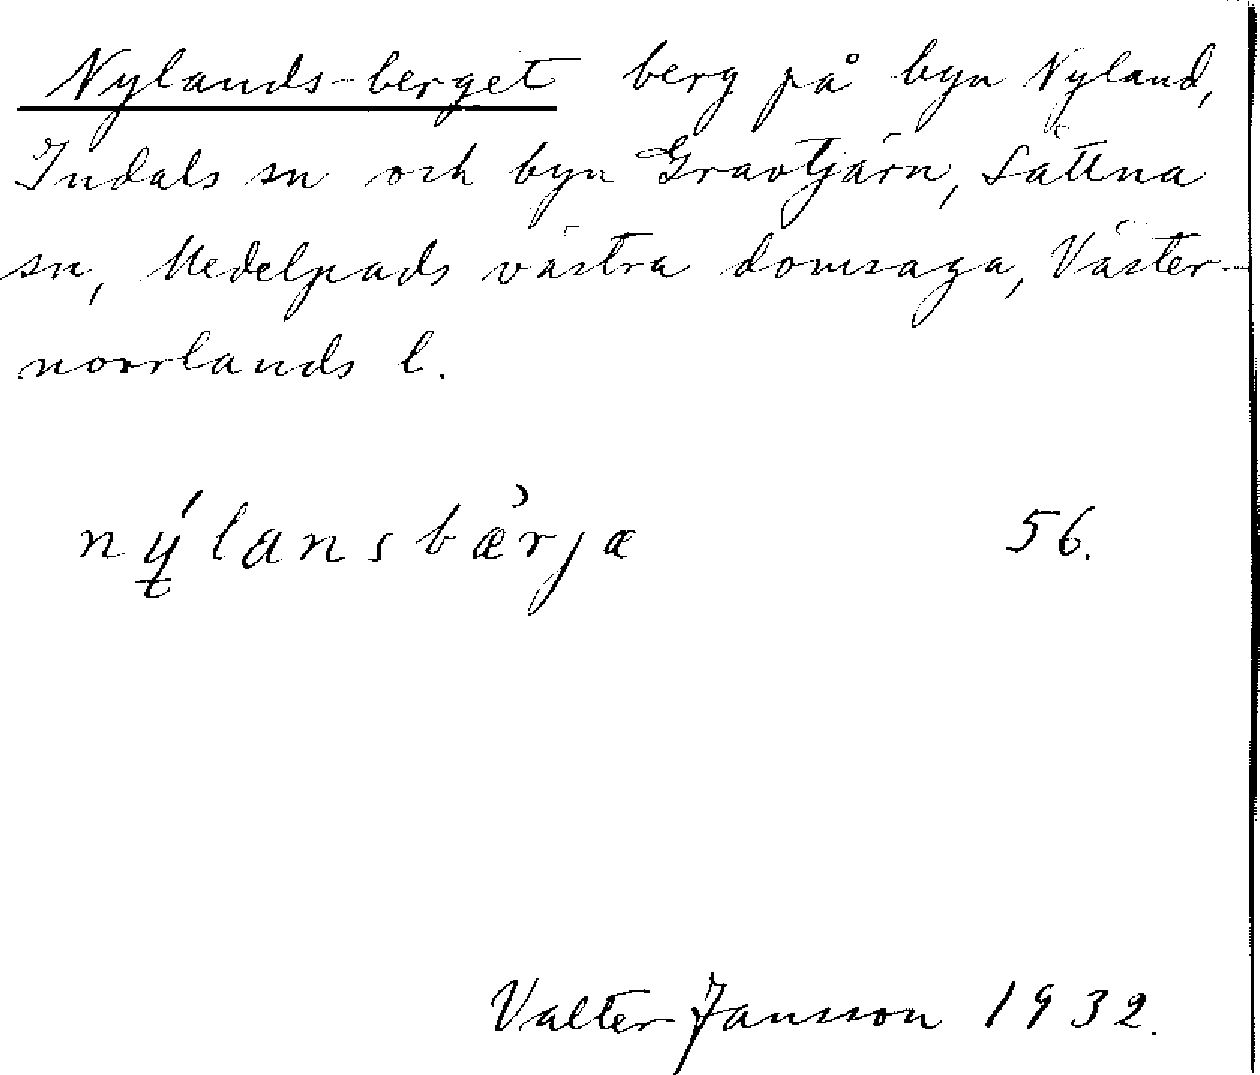 Nylands-berget berg på byn Nyland,
Indals sn och byn Gravtjärn, Sättna
sn, Medelpads västra domsaga, Väster-
norrlands l.
nýlansbærjæ 56.
Valter Jansson 1932.